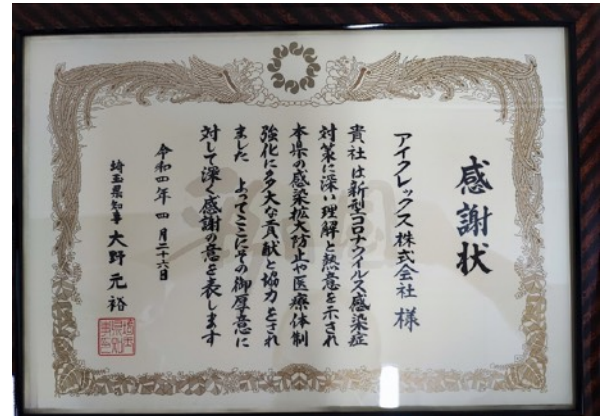 感謝状
アイクレックス株式会社 様
貴社は新型コロナウイルス感染症
対策に深い理解と熱意を示され
本県の感染拡大防止や医療体制
強化に多大な貢献と協力をされ
ました よってここにその御厚意に
対して深く感謝の意を表します
令和四年四月二十六日
埼玉県知事 大野元裕